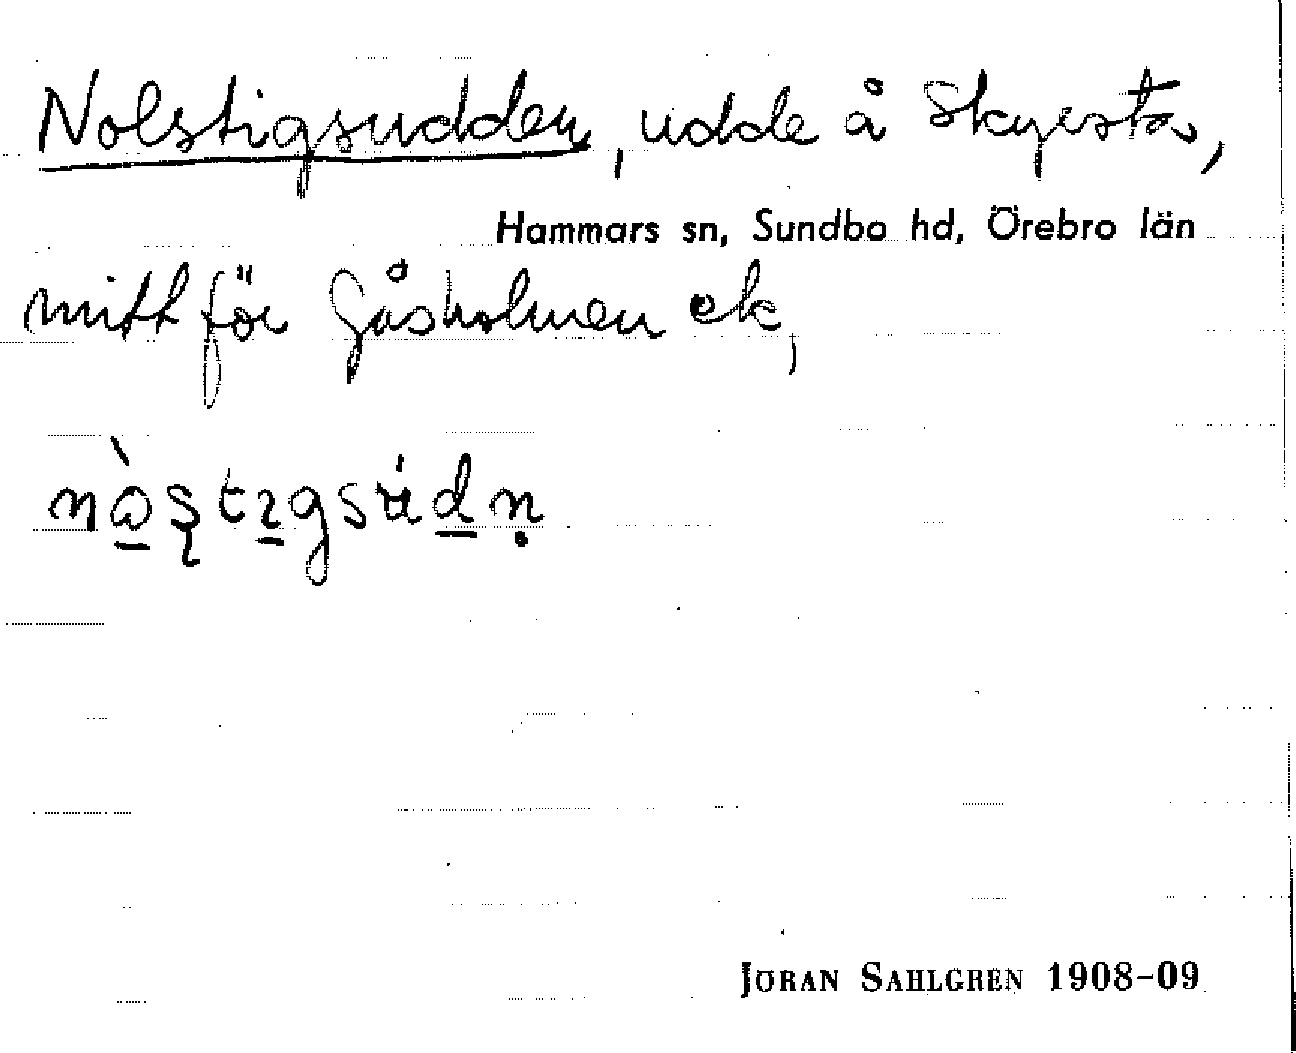 Nolstigsudden, udde å Skyrsta,
Hammars sn, Sundbo hd, Örebro län
mitt för Gåsholmen ek,
JÖRAN SAHLGREN 1908-09